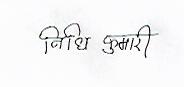 निधि कुमारी